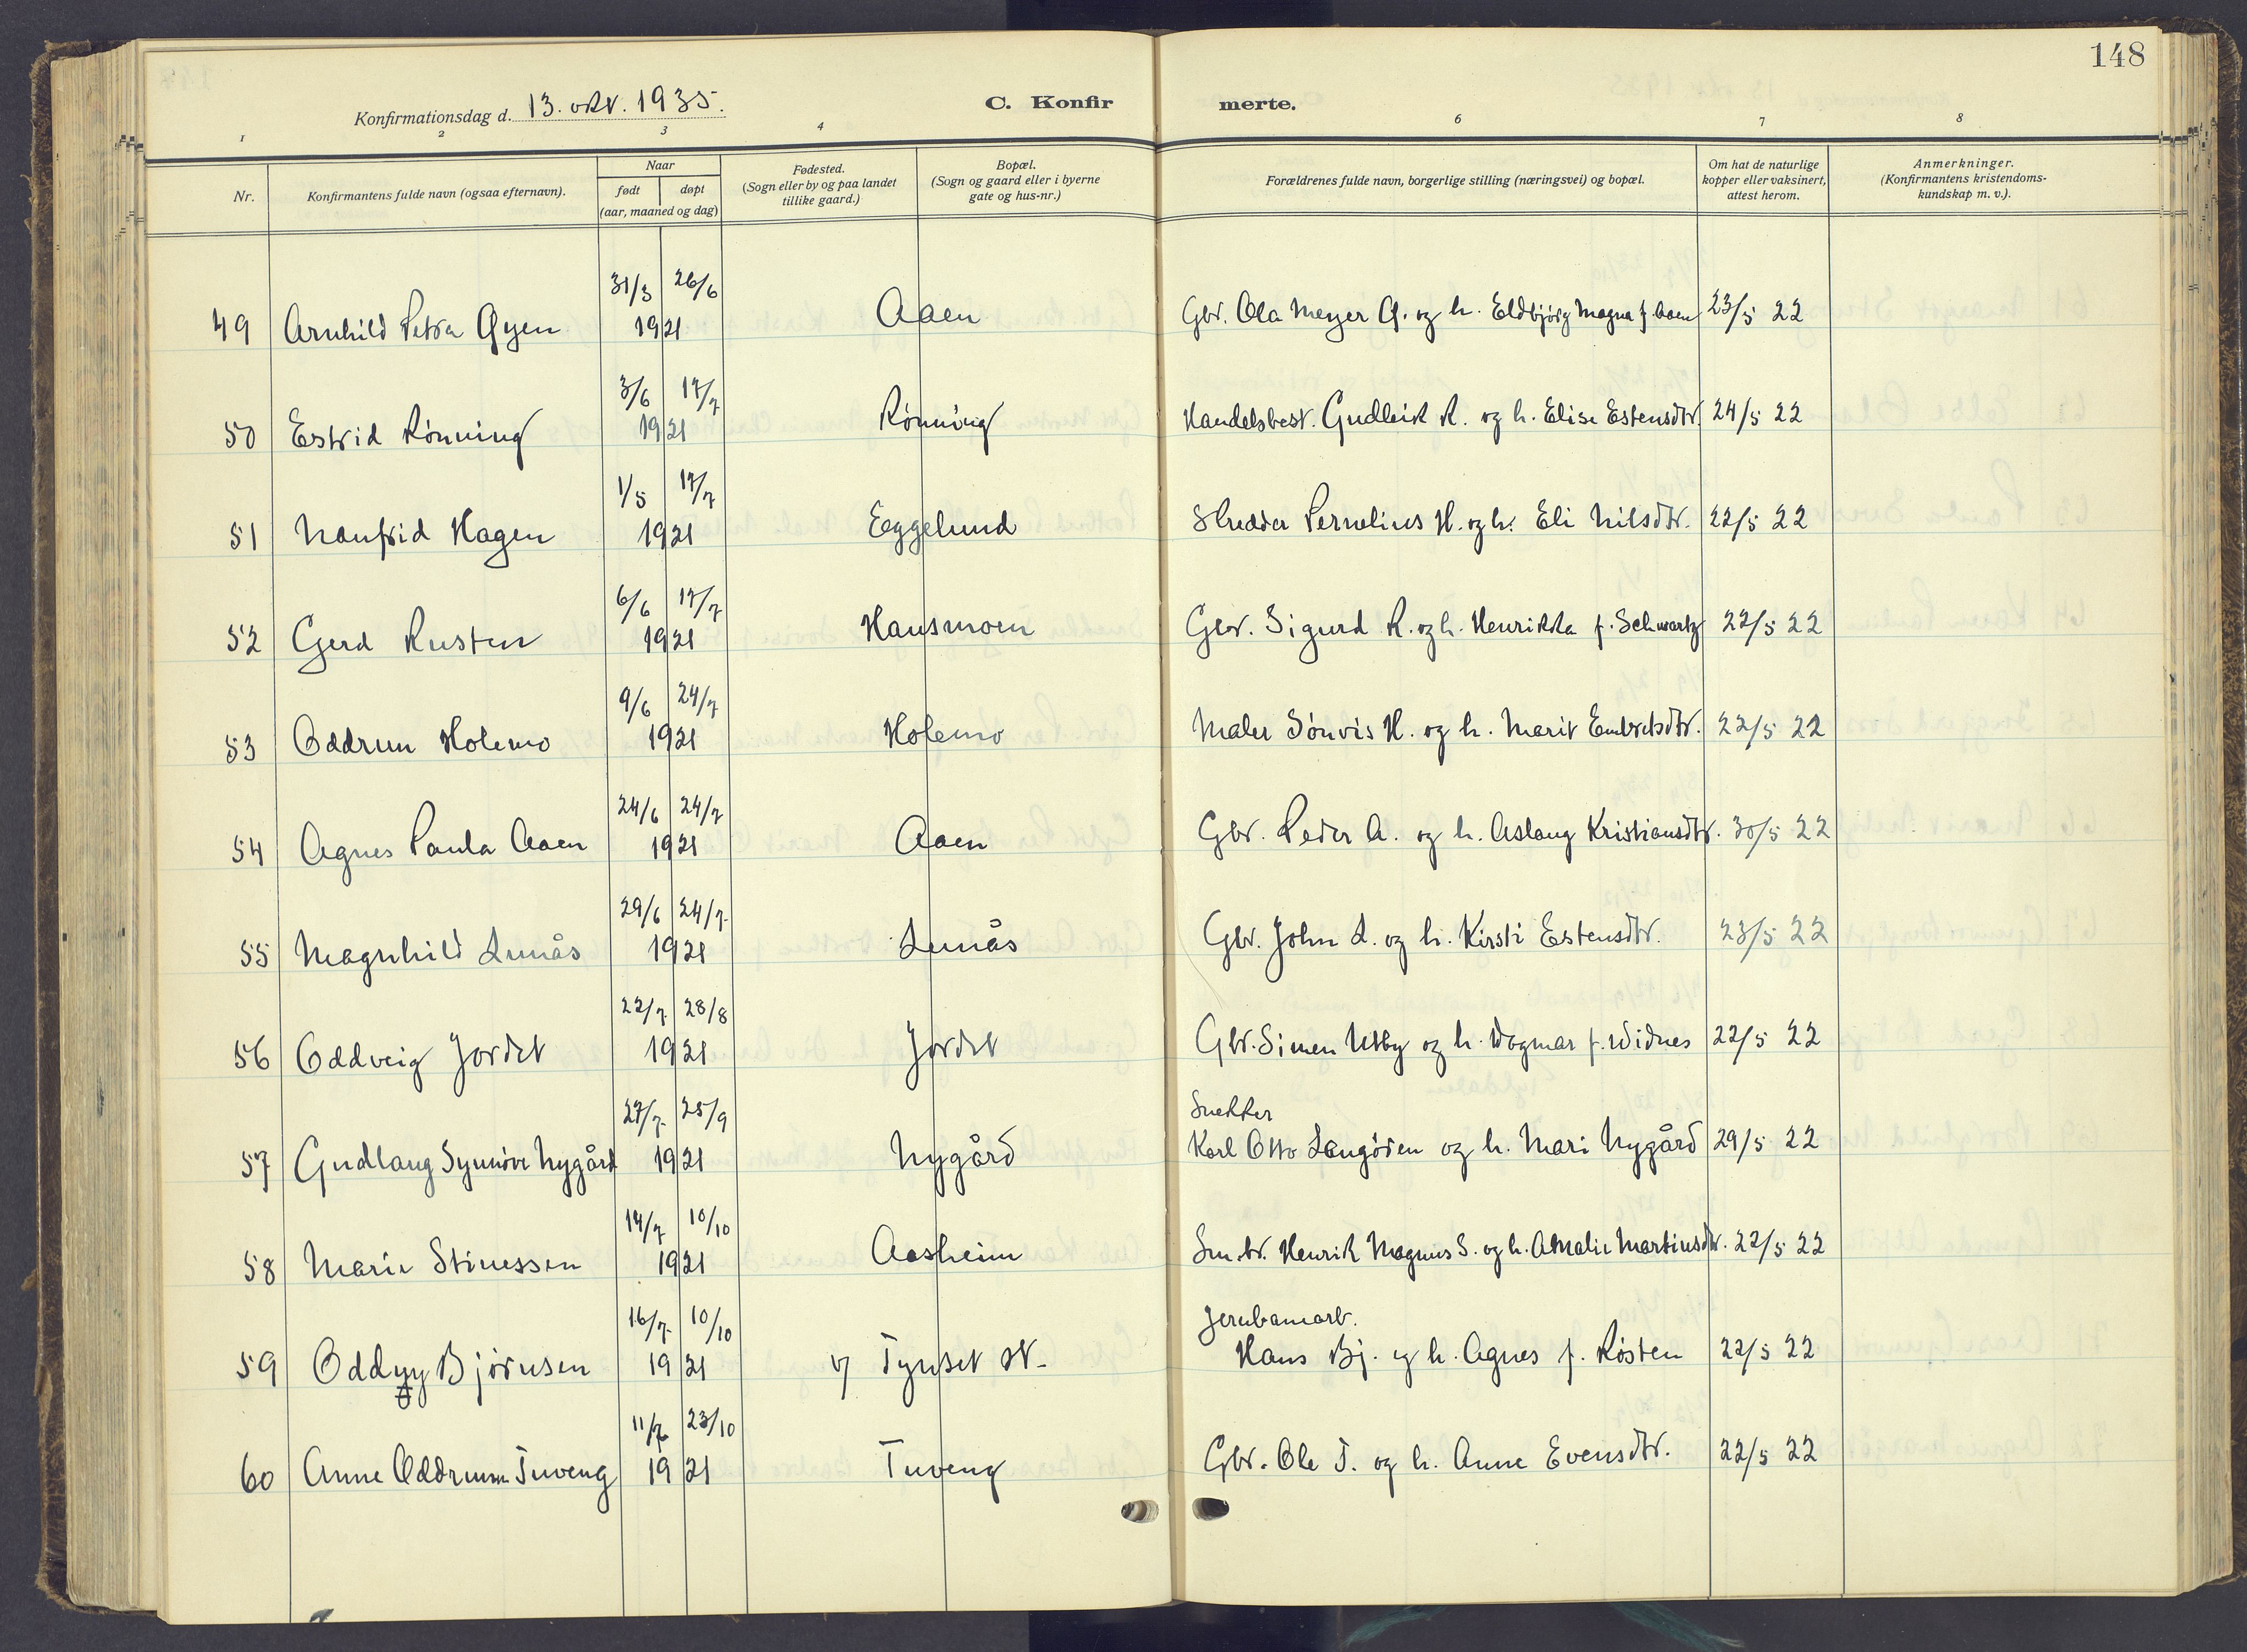 148
Konfirmationsdag d. 13. okt. 1935.
C. Konfir merte.
1 2 3 4 6 7 8
Nr.
Konfirmantens fulde navn (ogsaa efternavn).
Naar
født døpt
(aar, maaned og dag)
Fødested.
(Sogn eller by og paa landet
tillike gaard.)
Bopæl.
(Sogn og gaard eller i byerne
gate og hus-nr.)
Forældrenes fulde navn, borgerlige stilling (næringsvei) og bopæl.
Om hat de naturlige
kopper eller vaksinert,
attest herom.
Anmerkninger.
(Konfirmantens kristendoms-
kundskap m. v.).
31/3 26/6
49 Arnhild Petra Øyen 1921 Aaen Gbr. Ola Meyer Ø. og h. Eldbjørg Magna f. Aaen 23/5 22
3/6 17/7
50 Estrid Rønning 1921 Rønning Handelsbest. Gudleik R. og h. Elise Estensdtr. 24/5 22
1/5 17/7
51 Nanfrid Hagen 1921 Eggelund Skredder Pernelius H. og h. Eli Nilsdtr. 22/5 22
6/6 17/7
52 Gjerd Rusten 1921 Hansmoen Gbr. Sigurd R. og h. Henrikka f. Schwartz 22/5 22
9/6 24/7
53 Oddrun Holemo 1921 Holemo Maler Sønvis H. og h. Marit Embretsdtr. 22/5 22
24/6 24/7
54 Agnes Paula Aaen 1921 Aaen Gbr. Peder A. og h. Aslaug Kristiansdtr. 30/5 22
29/6 24/7
55 Magnhild Lunås 1921 Lunås Gbr. John L. og h. Kirsti Estensdtr. 23/5 22
22/7 28/8
56 Oddveig Jordet 1921 Jordet Gbr. Simen Utby og h. Dagmar f. Widnes 22/5 22
27/7 25/9 Snekker
57 Gudlaug Synnøve Nygård 1921 Nygård Karl Otto Langöien og h. Mari Nygård 29/5 22
14/7 10/10
58 Marie Stinessen 1921 Aasheim Sm.br. Henrik Magnus S. og h. Amalie Martinsdtr. 22/5 22
16/7 10/10 Jernbanearb.
59 Oddny Bjørnsen 1921 v/ Tynset st. Hans Bj. og h. Agnes f. Røsten 22/5 22
11/7 23/10
60 Anne Oddrun Tuveng 1921 Tuveng Gbr. Ole T. og h. Anne Evensdtr. 22/5 22